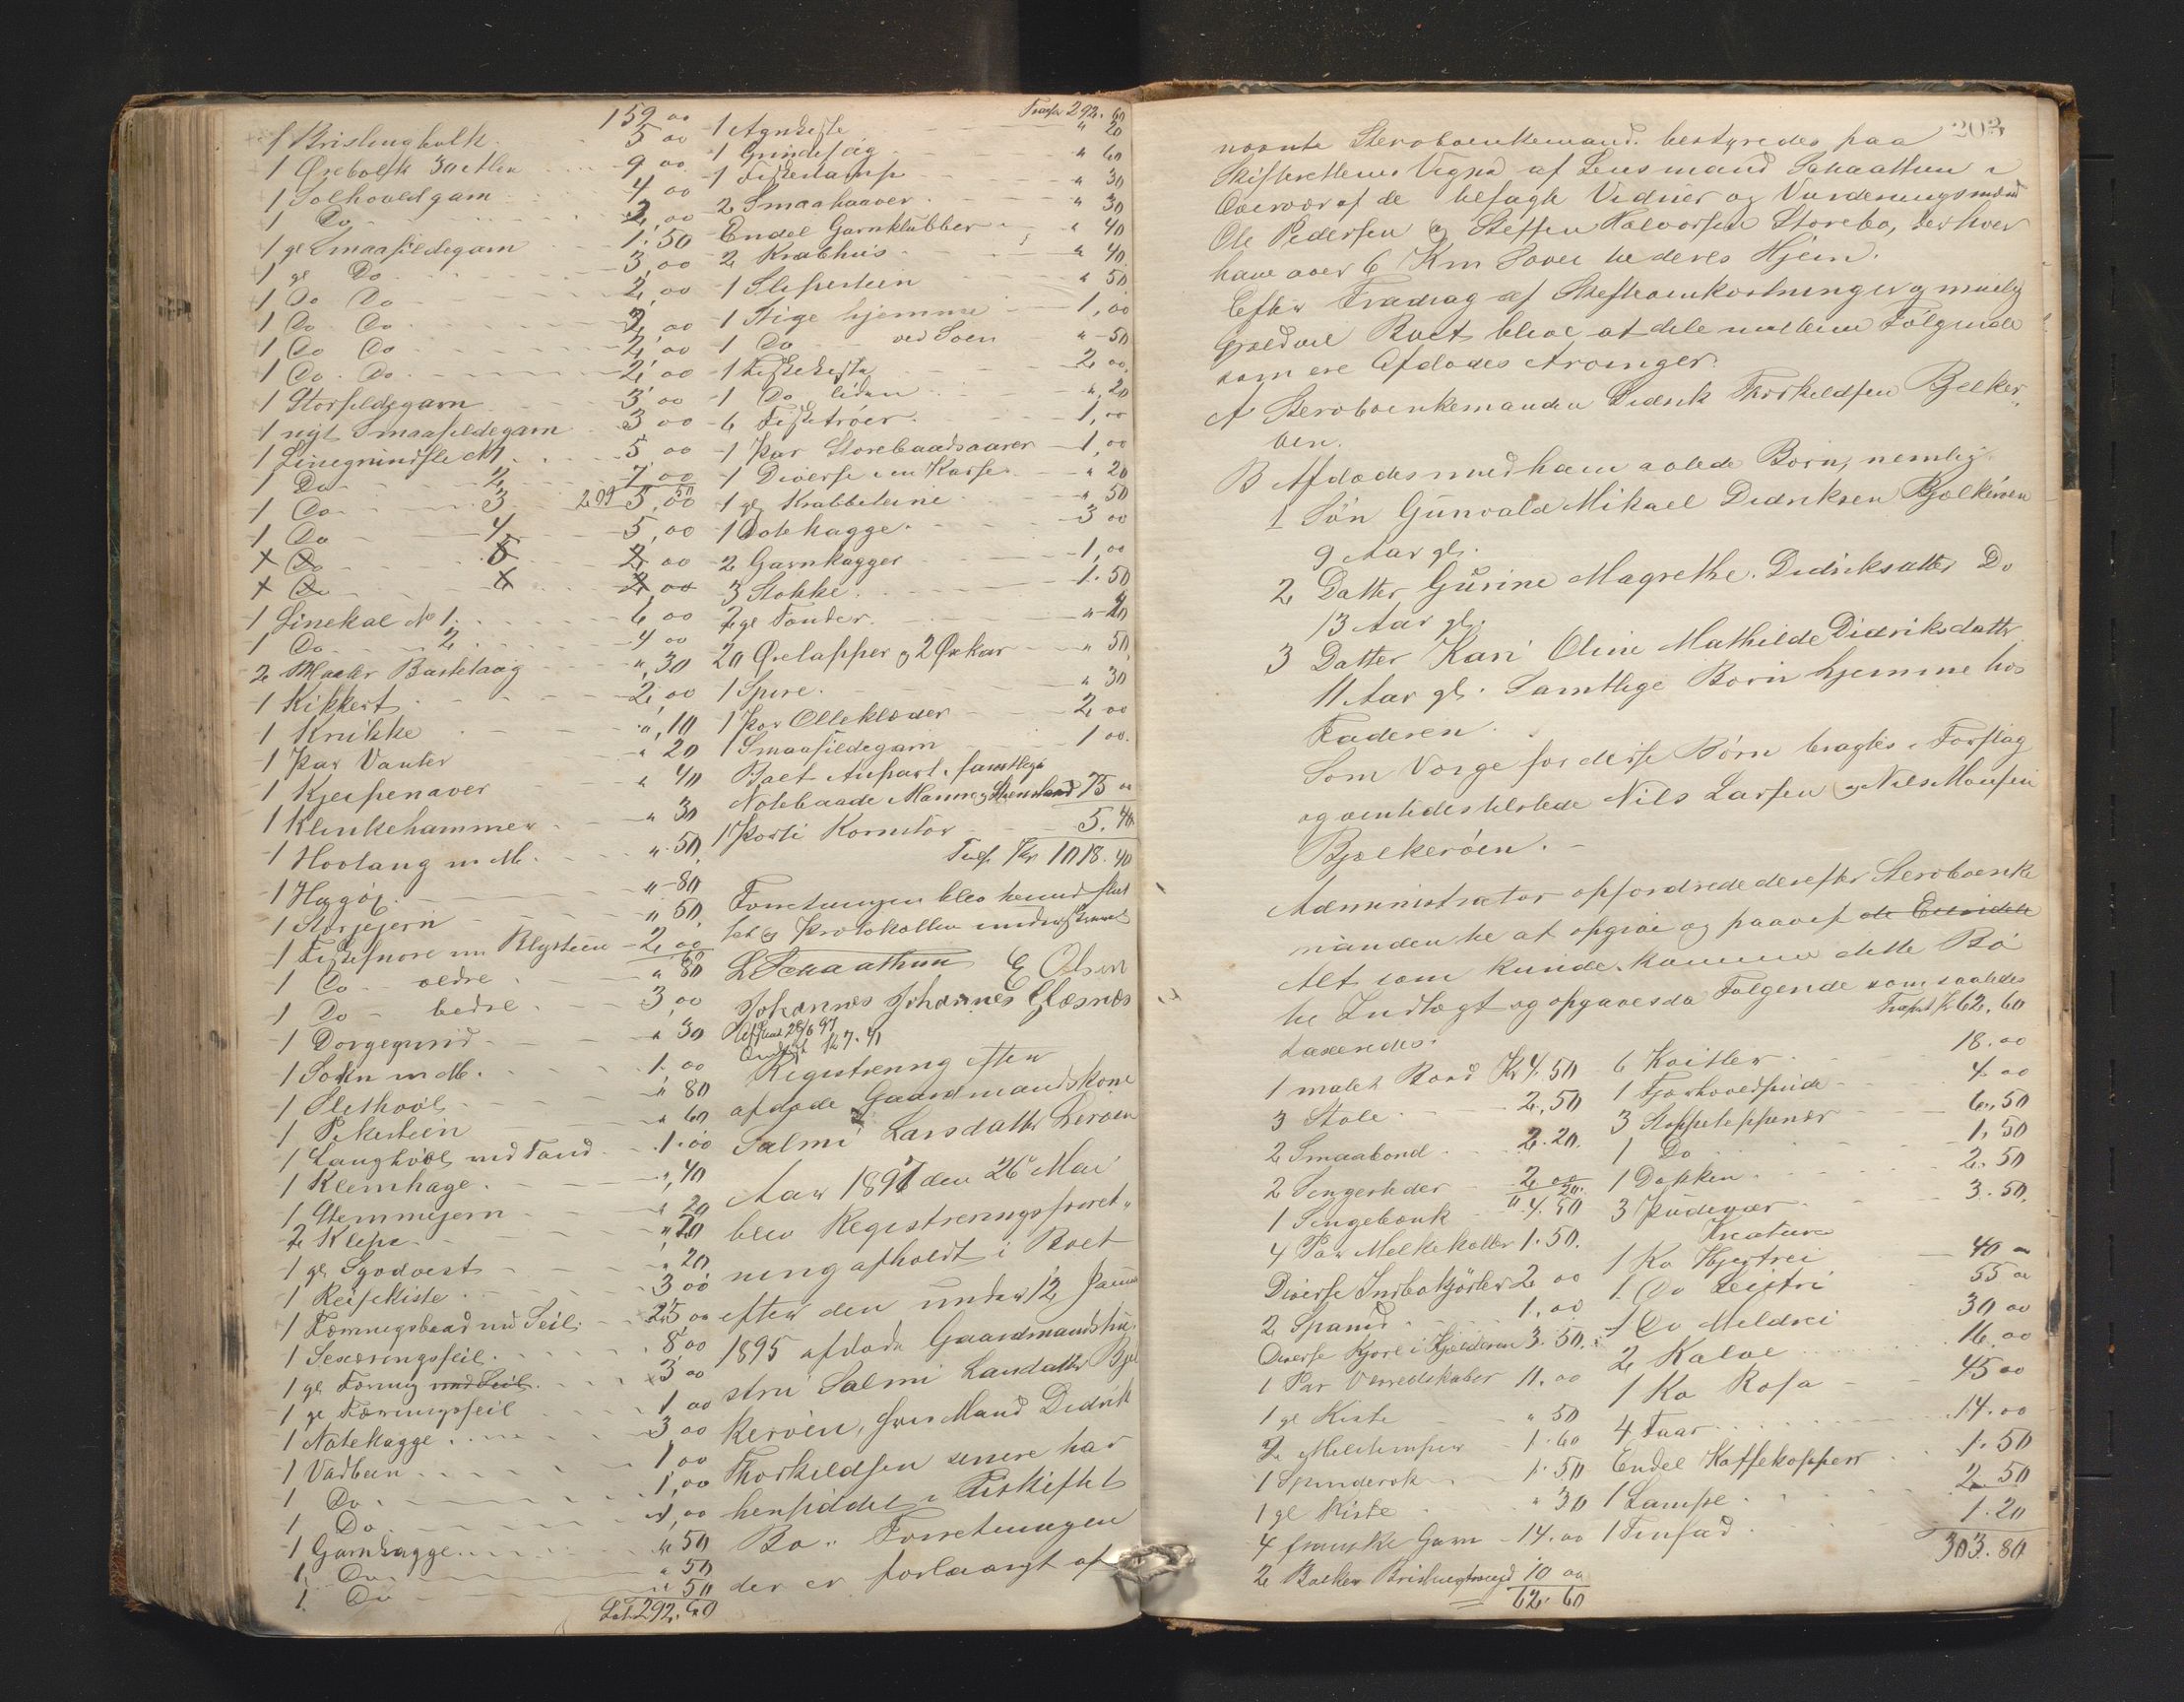 159 00
1 Brislingkulk 5 00
1 Ørebolk 30 Alen 9 00
1 Solhovedgarn 4 00
1 Do 2,00
1 gl Smaasildegarn 1.50
1 gl Do 3,00
1 Do Do 2,00
1 Do Do 2,00
1 Do Do 2,00
1 Do Do 2,00
1 Storsildegarn 3 00
1 nyt Smaasildegarn 3 00
1 Linegrundsle N1 5 00
1 Do 2 7,00
1 Do 3 5,00
1 Do 4 5,00
Do 5 2,00
Do 6 2,00
1 Linekal No 1. 6 00
1 Do 2 4 00
2 Marker Bastetaug ",30
1 Kikkert 2,00
1 Krukke ",10
1 Par Vanter " 20
1 Kjeipenaver " 40
1 Klinkehammer " 30
1 Hovtang m M. ". 50
1 Høgøx "-80
1 Storjejern " 50
1 Fiskesnøre m Blysteen 2,00
1 Do ældre " 80
1 Do bedre 3,00
1 Dorgegrind " 30
1 Sokn m M. 1.00
1 Slethøvl " 80
1 Pikesteen " 60
1 Langhøvl med Tand 1.00
1 Klemhage ",40
1 Stemmejern " 20
2 Klepe " 20
1 gl Sydvest " 20
1 Reisekiste 3 00
1 Færingsbaad md Seil 25,00
1 Sexæringsseil 8 00
1 gl Færing med Seil 3 00
1 gl Færingsseil 1 00
1 Notekagge 3 00
1 Vadbein 1 00
1 Do 1,00
1 Do 1,00
1 Garnkagge " 50
1 Do " 50
1 Do " 50
Lat 292.60
Tranp 292.60
1 Agnkiste " 20
1 Grindesag " 60
1 Fiskekamp " 30
2 Smaahaaver " 30
Endel Garnklubber " 40
2 Krabhus " 40
1 Slipesteen " 50
1 Stige hjemme 1,00
1 Do ved Søen "-50
1 Fiskekiste 2 00
1 Do liden ",20
6 Fisktrøer 1,00
1 Par Storebaadsaarer 1,00
1 Diverse i en Kasse " 20
1 gl Krabbeteine " 50
1 Notekagge 3 00
2 Garnkagger 1,00
3 Stokke 1.50
2 gl Tønder "-20
20 Ørelapper og 2 Øskar " 50
1 Spire " 30
1 Par Olleklæder 2 00
1 Smaasildegarn 1 00
Boet Anpart i samtlige
Notebaade Mannog Stensland 75 00
1 Parti Kornstør 5.40
Tilsf Kr 1018.40
Forretningen blev hermed slut
tet og Protokollen underskrevet
L Skaathun E Olsen
Johannes Johannes Glæsnæs
Udskrevet 28/6 97
Registrering efter
afdøde Gaardmandskone
Salmi Larsdatter Bjelkerøen
Aar 1897 den 26 Mai
blev Registreringsforret-
ning afholdt i Boet
efter den under 12 Januar
1895 afdøde Gaardmandshu-
stru Salmi Larsdatter Bjel
kerøen, hvis Mand Didrik
Thorkildsen senere har
hensiddet i Uskiftet
Bo. Forretningen
der er forlangt af
203
nævnte Stervboenkemand bestyredes paa
Skifterettens Vegne af Lensmand Skaathun i
Overvær af de befagte Vidner og Vurderingsmænd
Ole Pedersen og Steffen Halvorsen Storebø, der hver
have over 6 Km Søvei til deres Hjem.
Efter Fradrag af Skifteomkostninger og muelig
Gjæld vil Boet blive at dele mellem Følgende
som ere Afdødes Arvinger.
A Stervboenkemanden Didrik Thorkildsen Bjelker-
øen.
B Afdødes med ham avlede Børn, nemlig
1 Søn Gunvald Mikael Didriksen Bjelkerøen
9 Aar gl.
2 Datter Gurine Magrethe Didriksdatter Do
13 Aar gl.
3 Datter Kari Oline Mathilde Didriksdatter
11 Aar gl. Samtlige Børn hjemme hos
Faderen.
Som Værge for disse Børn bragtes i Forslag
og ventedes tilstede Nils Larsen og Nils Monsen
Bjelkerøen.
Administrator opfordrede derefter Stervboenke
manden til at opgive og paavise de
Alt som kunde komme dette Bo
til Indtægt og opgavesda Følgende som saaledes
taxeredes:
1 malet Bord Kr 4.50
3 Stole 2,50
2 Smaabord 2.20.
2 Sengesteder 2 00
1 Sengebænk " 4.50
4 Par Melkekoller 1.50.
Diverse Indbokjørler 2 00
2 Spand 1.00
Diverse Kjørl i Kjelderen 3.50
1 Par Vævredskaber 11.00
1 gl Kiste " 50
2 Meletemper 1.60
1 Spinderok 1.50
1 gl Kiste " 30
4 franske Garn 14.00
2 Bolker Brislingtraad 10 00
62.60
Transpt Kr 62.60
6 Kvitler 18.00
1 Fjærhovedpude 4 00
3 Stoppeteppener 6,50
1 Do 1,50
1 Dækken 2.50
3 Pudevær 3.50
Kreature
1 Ko Hjertrei 40 "
1 Do Leistri 55 00
1 Do Meldrei 30 00
2 Kalve 16.00
1 Ko Rosa 45 00
4 Faar 14.00
Endel Kaffekopper 1.50
1 Lampe 2 50
1 Tinfad 1.20
303.80